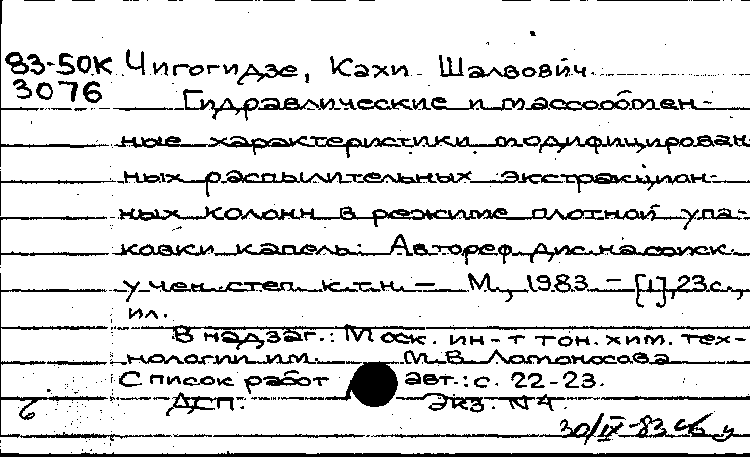 83-50К Чигогидзе, Кахи Шалвович
3076 Гидравлические и массообмен-
ные характеристики модифицирован
ных распылительных экстракцион-
ных колонн в режиме плотной упа-
ковки капель: Автореф дис. на соиск.
учен. степ. к.т.н. — М., 1983. — [1], 23 с.,
ил.
В надзаг.: Моск. ин-т тон. хим. тех-
нологии им. М.В. Ломоносова
Список работ авт.: с. 22-23.
ДСП. Экз. N 4.
30/IX-83